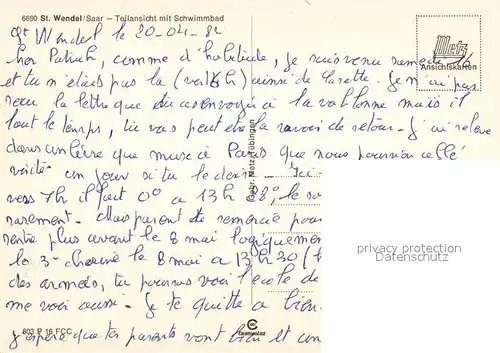 6690 St. Wendel/Saar – Teilansicht mit Schwimmbad
St Wendel le 20-04-82
cher Patrick, comme d'habitude, je suis venu samedi 16
et tu n'étais pas là (vers 16h) ainsi de
Je n'ai pas
reçu la lettre que tu as envoyé à la Valbonne mais il
faut le temps, tu vas peut être la ravoir de retour - J'ai relevé
dans un livre que musée Paris que nous pourrions allé
visité un jour si tu le desire
vers 7h il fait 0° à 13h 08°, le so
rarement. - Mais parent te remercie pour
rentre plus avant le 8 mai logiquement
le 3e chaine le 8 mai à 13h30 (
des armées, tu pourras voir l'école de
me voir aussi. - Je te quitte à bien
J'espère que tes parents vont bien et
Metz
Ansichtskarten
Gebr. Metz Tübingen
803 P 16 FCC
privacy protection
Datenschutz